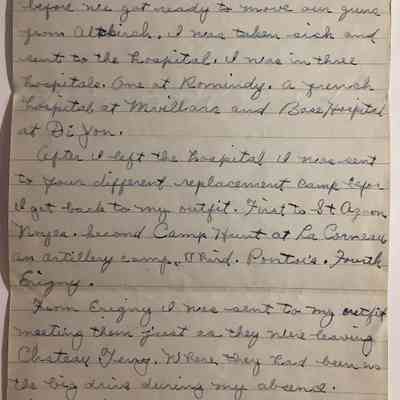 before we got ready to move our guns
from Altkirch. I was taken sick and
sent to the hospital. I was in three
hospitals. One at Romindy. A french
hospital at and Base Hospital
at Di Jon.
After I left the hospital I was sent
to four different replacement camp befor
I get back to my outfit. First to St
second Camp Hunt at La Corneau
an artillery camp. Third. Fourth
From I was sent to my outfit
meeting them just as they were leaving
Chateau Where they had been in
the big drive during my absence.